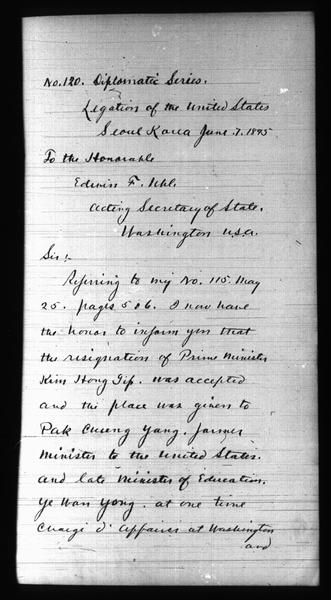 No. 120. Diplomatic Series.
Legation of the United States
Seoul Korea June. 7. 1895
To the Honorable
Edwin F. Uhl.
Acting Secretary of State.
Washington U.S.A.
Sir:-
Referring to my No. 115 May
25. pages 5 & 6. I now have
the honor to inform you that
the resignation of Prime Minister
Kim Hong Jip. was accepted
and the place was given to
Pak Chung Yang. former
Minister to the United States.
and late Minister of Education.
Ye Wan Yong. at one time
Chargé d' Affaires at Washington
and